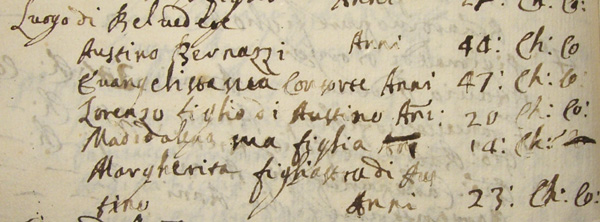 Luogo di Belvedere
Austino Bernazzi Anni 44: Ch: Co
Evangelista sua Consorte Anni 47: Ch: Co
Lorenzo figlio di Austino Ani: 20 Ch: Co:
Maddalena sua figlia Ani 14: Ch:
Margherita figliastra di Aus
tino Anni 23: Ch: Co: